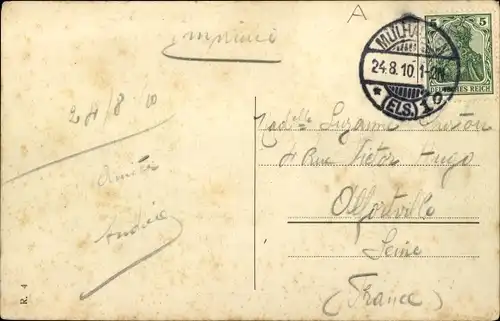 imprimé
A
MÜLHAUSEN
24.8.10.1-2N
* (ELS.) 1 c
5
DEUTSCHES REICH
24/8/10
Amitiés
Andrée
Madelle Suzanne
4 Rue Victor Hugo
Alfortville
Seine
(France)
R. 4